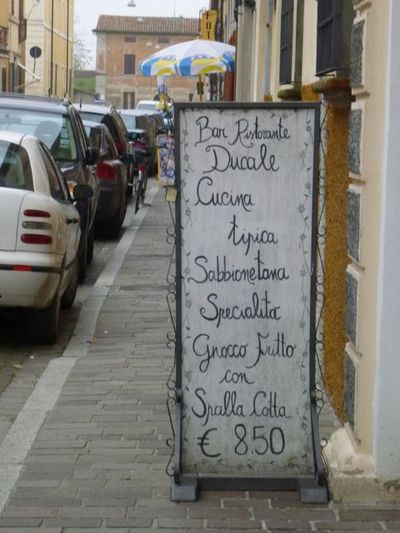 Bar Ristorante
Ducale
Cucina
tipica
Sabbionetana
Specialità
Gnocco Fritto
con
Spalla Cotta
€ 8.50